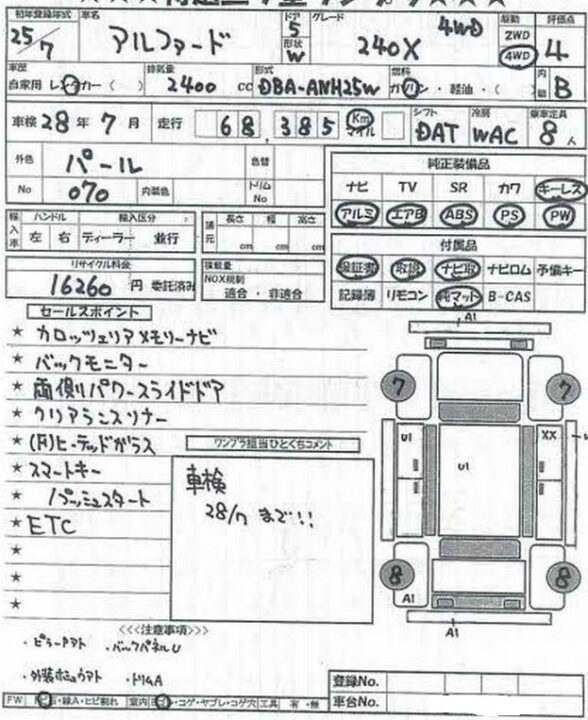 初年登録年式 車名 ドア グレード 駆動 評価点
25/7 アルファード 5 形状 W 240X 4WD 2WD 4WD 4
車歴 排気量 型式 燃料 内勤 B
自家用 レンタカー ( ) 2400 cc DBA-ANH25W ガソリン・軽油・( )
車検 28年 7月 走行 68,385 Km マイル シフト DAT 冷房 WAC 乗車定員 8人
外色 パール 色替
No 070 内装色 トリムNo
純正装備品
ナビ TV SR カワ キーレス
アルミ エアB ABS PS PW
輸入車 ハンドル 輸入区分 諸元 長さ 幅 高さ
左 右 ディーラー 並行 cm cm cm
付属品
保証書 取説 ナビ取 ナビロム 予備キー
記録簿 リモコン 純マット B-CAS
リサイクル料金 積載量
16260 円 委託済み NOX規制 適合・非適合
セールスポイント
★ カロッツェリアメモリーナビ
★ バックモニター
★ 両側パワースライドドア
★ クリアランスソナー
★ (F)ヒーテッドガラス
★ スマートキー
★ プッシュスタート
★ ETC
★
★
★
ワンプラ担当ひとくちコメント
車検
28/7 まで!!
A1
7 7
U1 XX
U1
8 8
A1
A1
<<<注意事項>>>
・ピラーアト ・バックパネルU
・外装ホシュウアト ・トリムA
登録No.
車台No.
FW ・線A・ヒビ割れ 室内 ・コゲ・ヤブレ・コゲ穴 工具 有・無